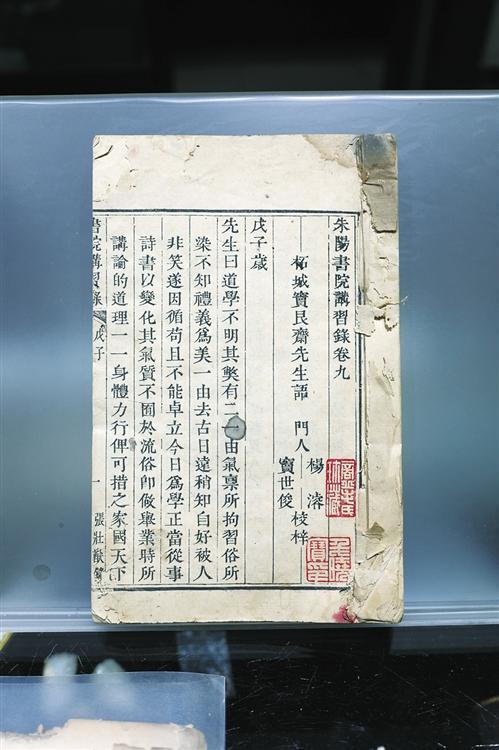 朱陽書院講習錄卷九
柘城竇艮齋先生語 門人 楊濬 竇世俊 校梓
戊子歲
先生曰道學不明其獘有二一由氣稟所拘習俗所
染不知禮義爲美一由去古日遠稍知自好被人
非笑遂因循苟且不能卓立今日爲學正當從事
詩書以變化其氣質不囿於流俗卽做舉業時所
講論的道理一一身體力行俾可措之家國天下
書院講習錄 戊子 一